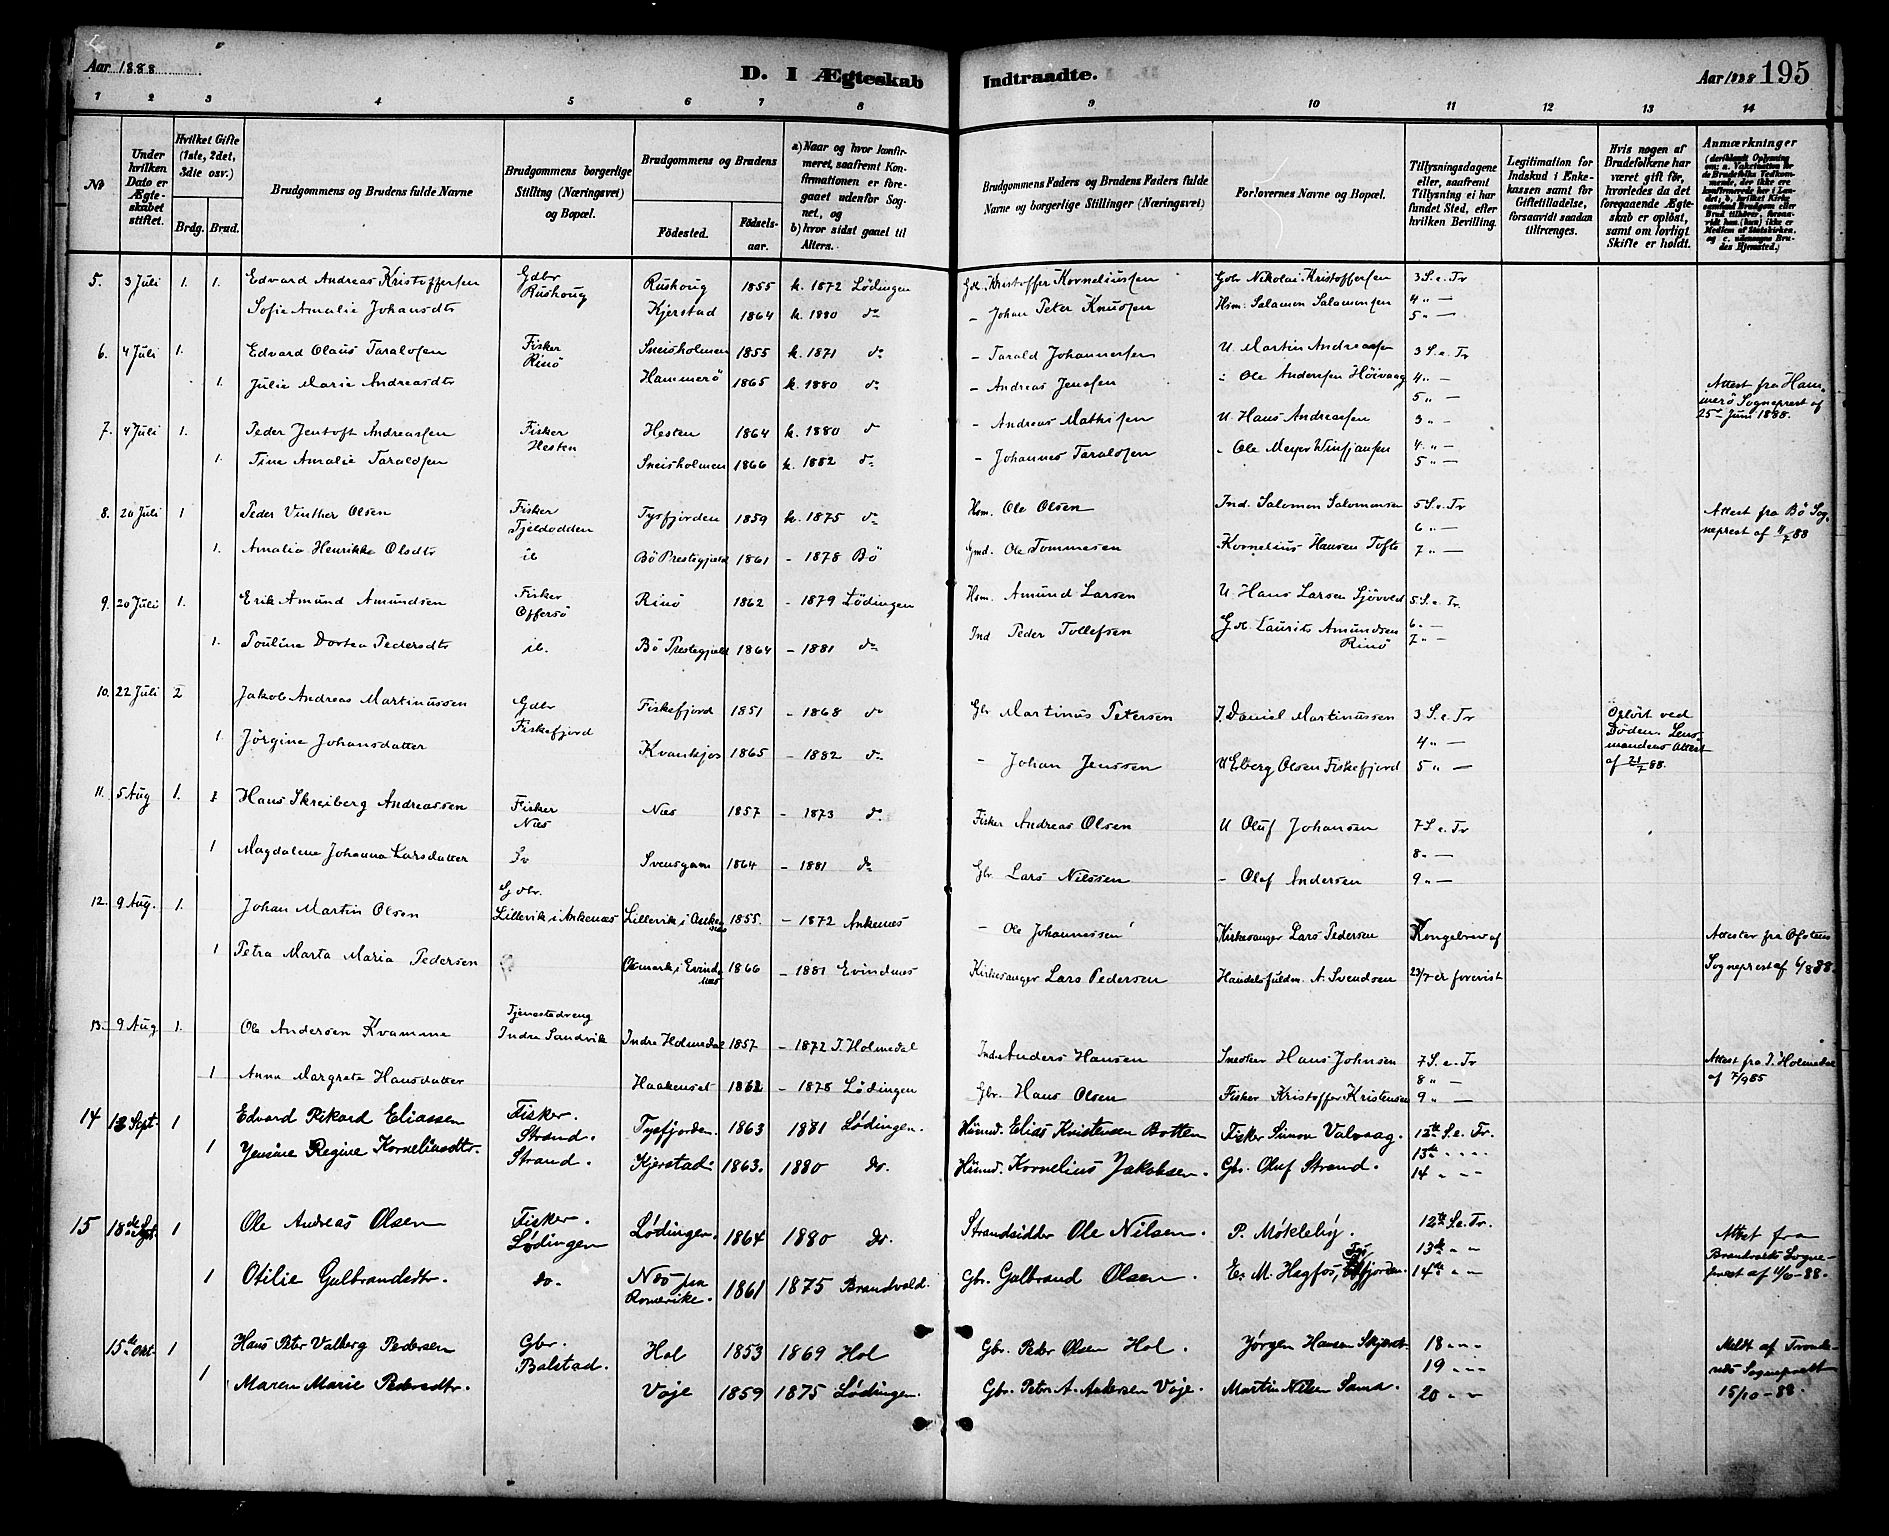 Aar 1888
D. I Ægteskab Indtraadte.
Aar 1888 195
1 2 3 4 5 6 7 8 9 10 11 12 13 14
№
Under hvilken Dato er Ægteskabet stiftet.
Hvilket Gifte (1ste, 2det, 3die osv.)
Brdg. Brud.
Brudgommens og Brudens fulde Navne
Brudgommens borgerlige Stilling (Næringsvei) og Bopæl.
Brudgommens og Brudens
Fødested. Fødselsaar.
a) Naar og hvor konfirmeret, saafremt Konfirmationen er foregaaet udenfor Sognet, og
b) hvor sidst gaaet til Alters.
Brudgommens Faders og Brudens Faders fulde Navne og borgerlige Stillinger (Næringsvei)
Forlovernes Navne og Bopæl.
Tillysningsdagene eller, saafremt Tillysning ei har fundet Sted, efter hvilken Bevilling.
Legitimation for Indskud i Enkekassen samt for Giftetilladelse, forsaavidt saadan tiltrænges.
Hvis nogen af Brudefolkene har været gift før, hvorledes da det foregaaende Ægteskab er opløst, samt om lovligt Skifte er holdt.
Anmærkninger
5. 3 Juli 1. 1. Edvard Andreas Kristoffersen Gdbr Rushoug Rushoug 1855 k. 1872 Lødingen Gdl. Kristoffer Korneliussen Gbr Nikolai Kristoffersen 3 S. e. Tr
Sofie Amalie Johansdtr Kjerstad 1864 k. 1880 do - Johan Peter Knudsen Hsm. Salamon Salamonsen 4 " —
5 " —
6. 4 Juli 1. Edvard Olaus Taraldsen Fisker Rinø Sneisholmen 1855 k. 1871 do - Tarald Johannesen U. Martin Andreassen 3 S. e. Tr
1. Julie Marie Andreasdtr Hammerö 1865 k. 1880 do - Andreas Jensen " Ole Andersen Höivaag 4 " — Attest fra Hammerö Sogneprest af 25de Juni 1888.
5 " —
7. 4 Juli 1. Peder Jentoft Andreassen Fisker Hesten Hesten 1864 k. 1880 do - Andreas Mathisen U. Hans Andreassen 3 " —
1. Tine Amalie Taraldsen Sneisholmen 1866 k. 1882 do - Johannes Taraldsen - Ole Meyer Winsjansen 4 " —
5 " —
8. 20 Juli 1 Peder Vinther Olsen Fisker Tjeldodden Tysfjorden 1859 k. 1875 do Hsm. Ole Olsen Ind. Salomon Salomonsen 5 S. e. Tr Attest fra Bö Sogneprest af 11/7 88
6 " —
1. Amalia Henrikke Olsdtr ib Bö Prestegjeld 1861 - 1878 Bö Gmd. Ole Tommesen Kornelius Hansen Tofte 7 " —
9. 20 Juli 1. Erik Amund Amundsen Fisker Offersö Rinö 1862 - 1879 Lödingen Hsm. Amund Larsen U. Hans Larsen Sjövold 5 S. e. Tr.
6 " —
1. Pouline Dortea Pedersdtr ib. Bö Prestegjeld 1864 - 1881 do Ind Peder Tollefsen Laurits Amundsen Rinö 7 " —
10. 22 Juli 2 Jakob Andreas Martinussen Gdbr Fiskefjord Fiskefjord 1851 - 1868 do Gbr Martinus Petersen J. Daniel Martinussen 3 S. e. Tr Opløst ved Døden. Lensmandens Attest af 21/7 88.
4 " —
1 Jörgine Johansdatter Kvankjos 1865 - 1882 do - Johan Jenssen U Elberg Olsen Fiskefjord 5 " —
11. 5 Aug 1. Hans Skreiberg Andreassen Fisker Næs Næs 1857 - 1873 do. Fisker Andreas Olsen U Oluf Johansen 7 S. e. Tr
8 " —
1 Magdalene Johanna Larsdatter Svensgam 1864 - 1881 do Gbr. Lars Nilssen - Olaf Andersen 9 " —
12. 9 Aug. 1. Johan Martin Olsen Gdbr. Lillevik i Ankenæs Lillevik i Ankenæs 1855. - 1872 Ankenes - Ole Johannessen Kirkesanger Lars Pedersen Kongebrev af Attester fra Ofotens
1 Petra Marta Maria Pedersen Osmark i Evindenæs 1866 - 1881 Evindnæs Kirkesanger Lars Pedersen Handelsfuldm. A. Svendsen 23/7 er forevist Sogneprest af 6/8 88.
13. 9 Aug 1. Ole Andersen Kvamme Tjenestedreng Indre Sandvik Indre Holmedal 1857 - 1872 I. Holmedal Inds Anders Hansen Snedker Hans Johnsen 7 S. e. Tr Attest fra I. Holmedal af 7/9 85
1 Anna Margrete Hansdatter Haakenset 1862 - 1878 Lödingen Gbr. Hans Olsen Fisker Kristoffer Kristensen 8 " —
9 " —
14 13 Sept. 1 Edvard Rikard Eliassen Fisker. Strand. Tysfjorden. 1863 1881 Lödingen. Huusmd. Elias Kristensen Botten Fisker Simon Valvaag. 12te S. e. Tr.
1 Jensine Regine Korneliusdtr. Strand. Kjerstad. 1863. 1880 do. Huusmd. Kornelius Jakobsen. Gbr. Oluf Strand. 13de " "
14 " "
15 18de Sept. 1 Ole Andreas Olsen Fisker. Lødingen Lødingen. 1864 1880 do. Strandsidder Ole Nilsen. P. Møkleby. 12te S. e. Tr. Attest fra
13de " " Brandvolds Sogne-
1 Otilie Gulbrandsdtr. do. Næs paa Romerike. 1861 1875 Brandvold. Gbr. Gulbrand Olsen. E. M. Hagfos, Tysfjorden. 14de " " prest af 4/6-88.
15de Okt. 1 Hans Petr Valberg Pedersen Gbr. Balstad. Hol 1853 1869 Hol Gbr. Peder Olsen Hol. Jørgen Hansen 18 " " Meldt af Trondenæs Sogneprest 15/10-88.
19 " "
1 Maren Marie Pedersdtr. Vaje 1859 1875 Lødingen. Gbr. Petr A. Andersen Vaje. Martin Nilsen Sand. 20 " "